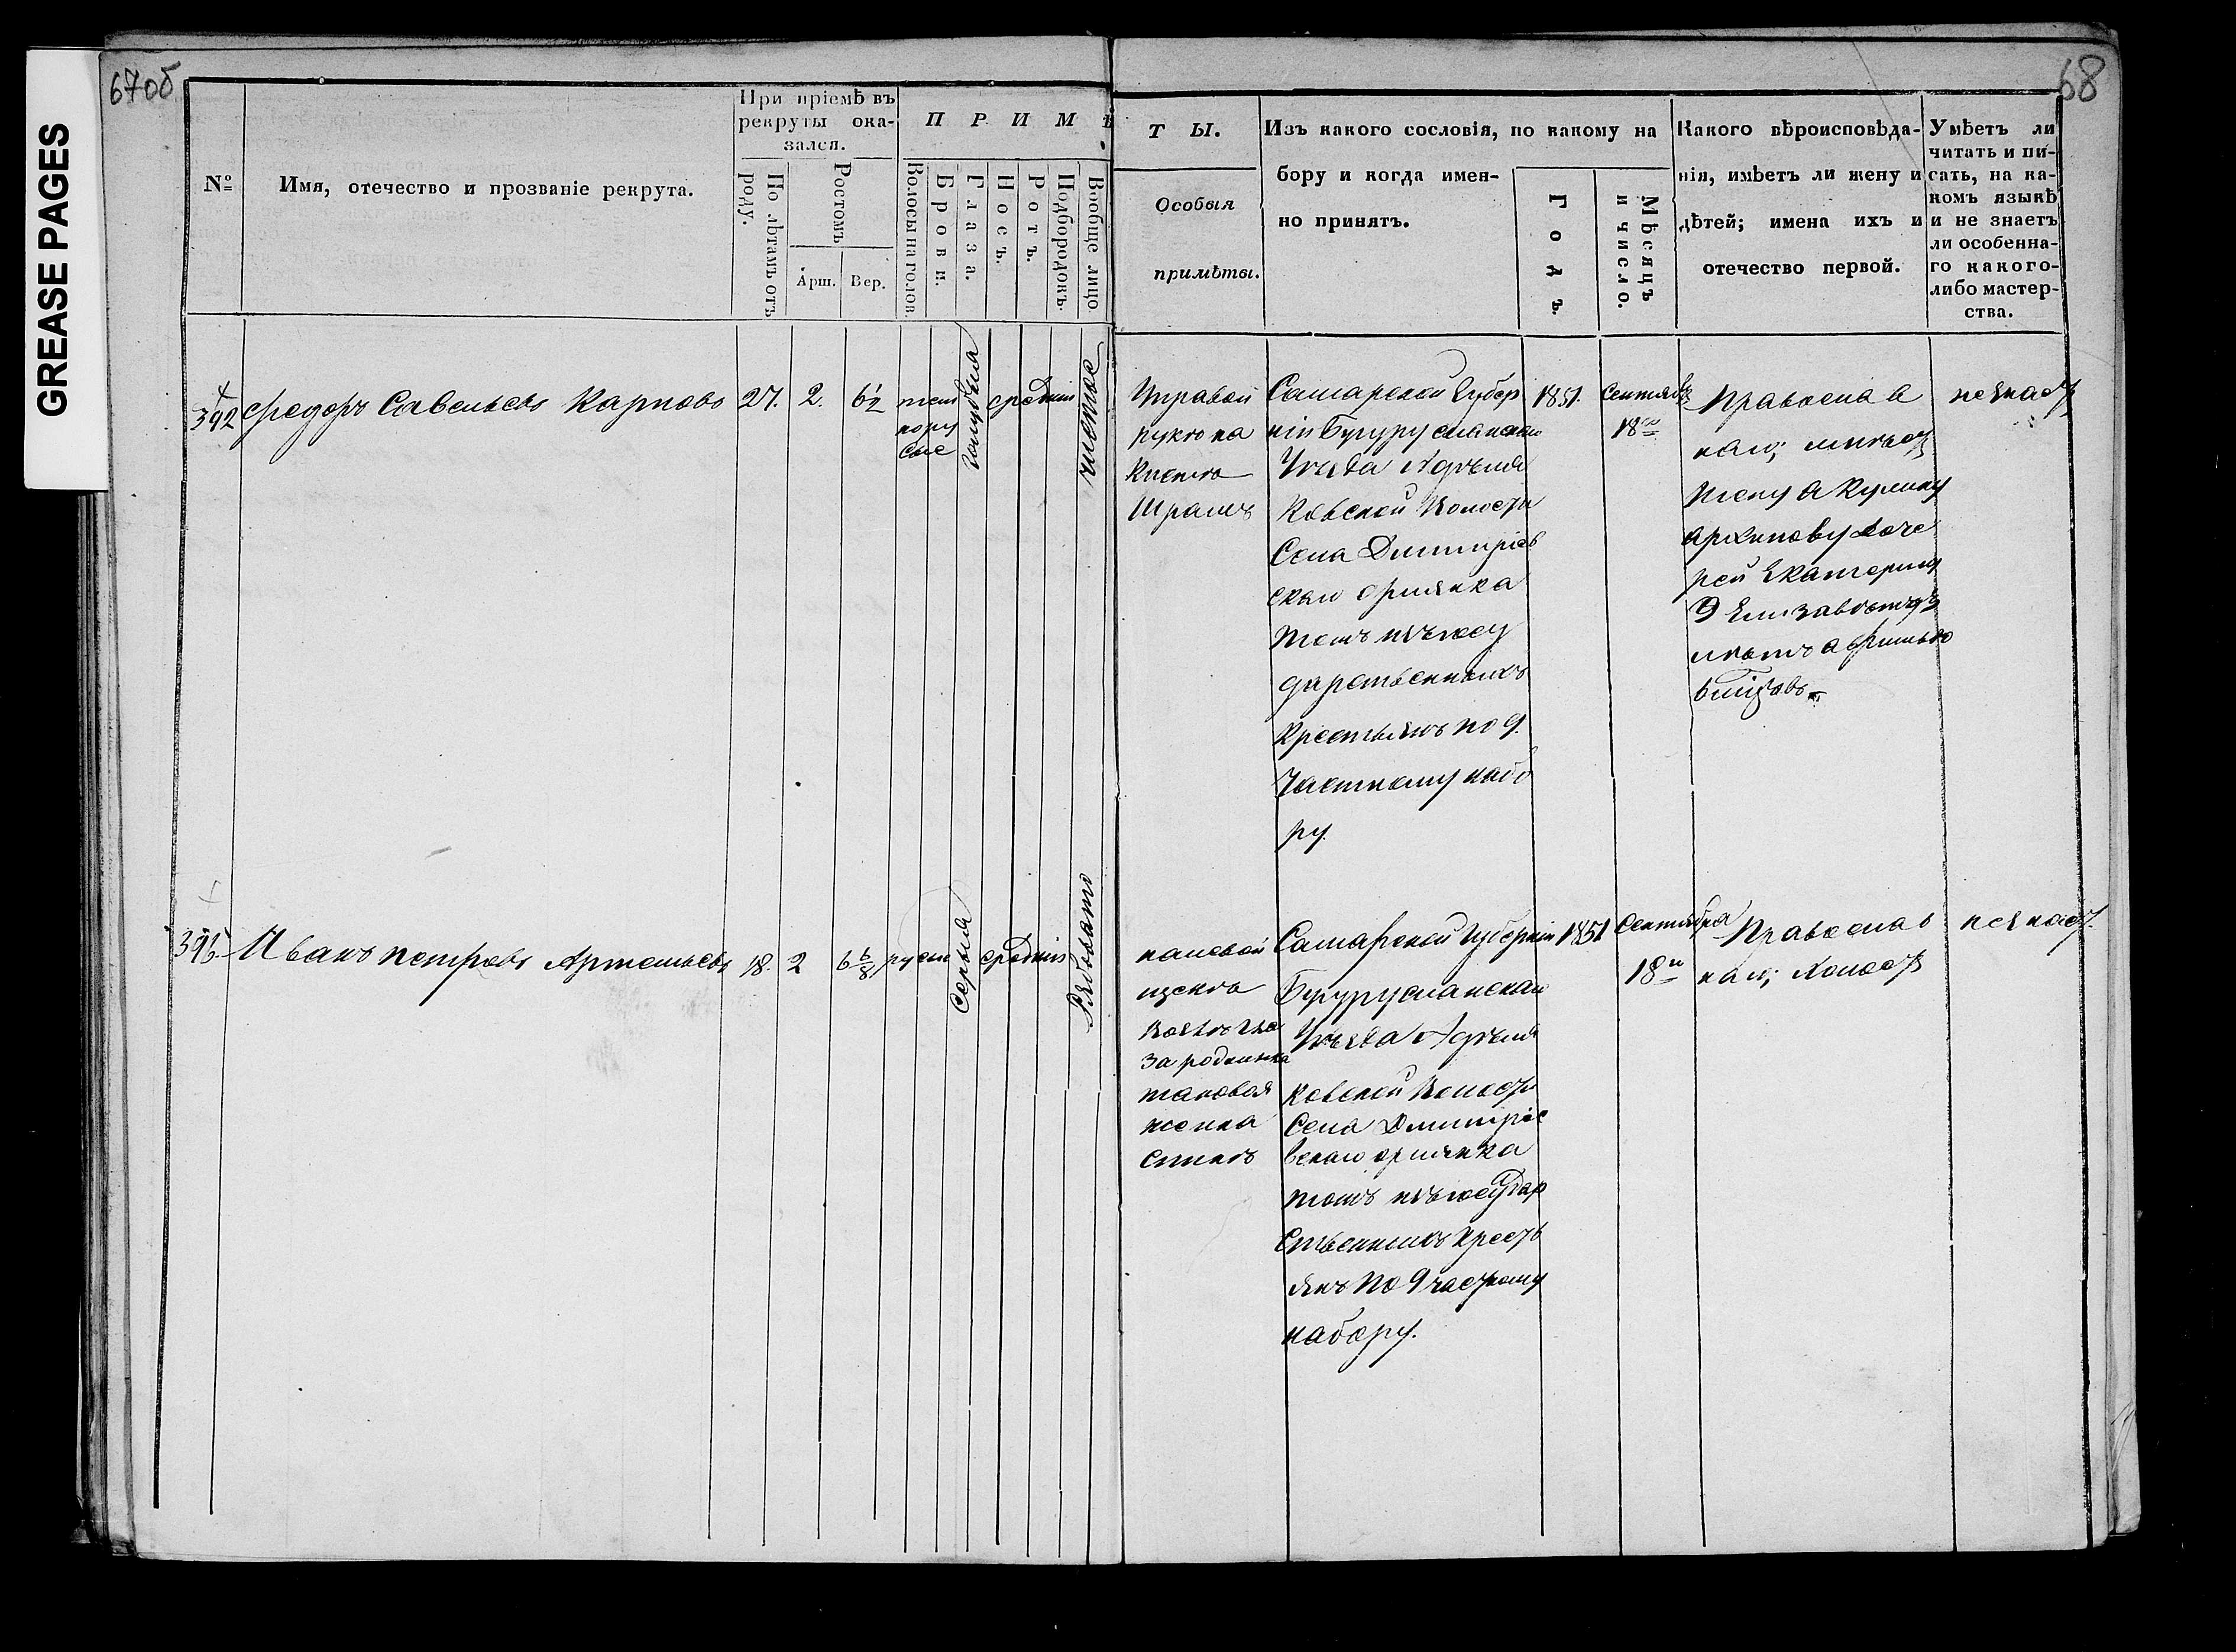 GREASE PAGES
67об
68
№
Имя, отечество и прозваніе рекрута.
При пріемѣ въ
рекруты ока-
зался.
По лѣтамъ отъ
роду.
Ростомъ
Арш.
Вер.
П Р И М Ѣ
Волосы на голов.
Брови.
Глаза.
Носъ.
Ротъ.
Подбородокъ.
Вообще лицо
Т Ы.
Особыя
примѣты.
Изъ какого сословія, по какому на
бору и когда имен-
но принятъ.
Годъ.
Мѣсяцъ
и число.
Какого вѣроисповѣда-
нія, имѣетъ ли жену и
дѣтей; имена ихъ и
отечество первой.
Умѣетъ ли
читать и пи-
сать, на ка-
комъ языкѣ
и не знаетъ
ли особенна-
го какого-
либо мастер-
ства.
392
Федоръ Савельевъ Карповъ
27.
2.
6½
тем
нору
сые
голубыя
средніи
чистое
Управой
руки на
кисти
Шрамъ
Самарской Губер
ніи Бугурусланскаго
Уѣзда
ковской Волости
Села Дмитріев
скаго
тожъ
дарственныхъ
Крестьянъ по 9.
Частному набо
ру.
1851.
Сентября
18го
Православ
наго; имѣетъ
жену Акулину
Архипову доче
рей Екатерину
Елизавету
незнаетъ
395.
Иванъ Петровъ Артемьевъ
18.
2
6 6/8
русые
Серыя
средніи
Рябовато
налевой
щекѣ
такова
Самарской Губерніи
Бугурусланскаго
Уѣзда
ковской Волости
Села Дмитріе
вскаго
тожъ
ственныхъ Кресть
янъ по 9 частному
набору.
1851
Сентября
18го
Православ
наго; Холостъ
незнаетъ.